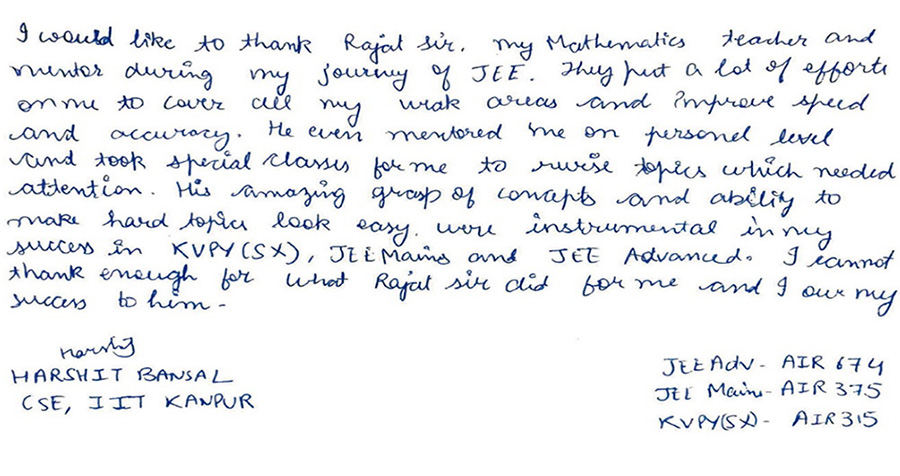 I would like to thank Rajat sir, my Mathematics teacher and
mentor during my journey of JEE. They put a lot of efforts
on me to cover all my weak areas and improve speed
and accuracy. He even mentored me on personel level
and took special classes for me to revise topics which needed
attention. His amazing grasp of concepts and ability to
make hard topics look easy, were instrumental in my
success in KVPY(SX), JEE Mains and JEE Advanced. I cannot
thank enough for what Rajat sir did for me and I our my
success to him -
Harshit
HARSHIT BANSAL
CSE, IIT KANPUR
JEE Adv - AIR 674
JEE Mains - AIR 375
KVPY(SX) - AIR 315